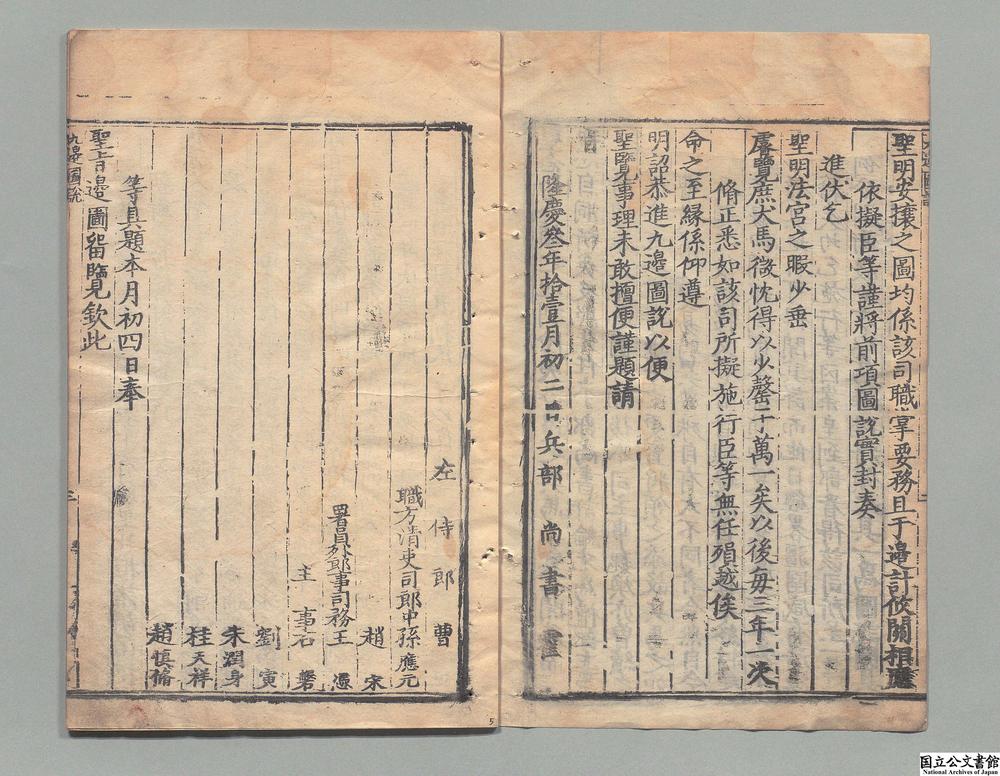 聖明安攘之圖均係該司職掌要務且于邊計攸關相應
依擬臣等謹將前項圖說實封奏
進伏乞
聖明法宮之暇少垂
睿覽庶犬馬微忱得以少罄于萬一矣以後每三年一次
脩正悉如該司所擬施行臣等無任殞越俟
命之至緣係仰遵
明詔恭進九邊圖說以便
聖覽事理未敢擅便謹題請
旨
隆慶叁年拾壹月初二日兵部尚書霍
左侍郎曹
職方清吏司郎中孫應元
趙宋
署員外郎事司務王憑
主事石磐
劉寅
朱潤身
桂天祥
趙慎脩
等具題本月初四日奉
聖旨邊圖留覽欽此
九邊圖說
5
国立公文書館
National Archives of Japan